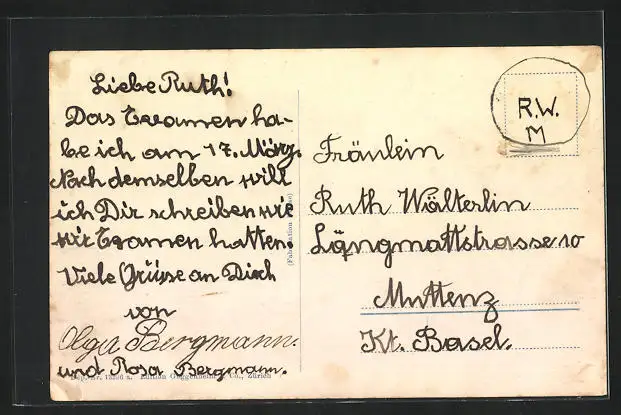 Liebe Ruth!
Das Examen ha-
be ich am 17. März.
Nach demselben will
ich Dir schreiben wie
wir Examen hatten.
Viele Grüsse an Dich
von
Olga Bergmann.
und Rosa Bergmann.
Edition Guggenheim & Co., Zürich
R.W.
M
Fräulein
Ruth Wälterlin
Längmattstrasse 10
Muttenz
Kt. Basel.